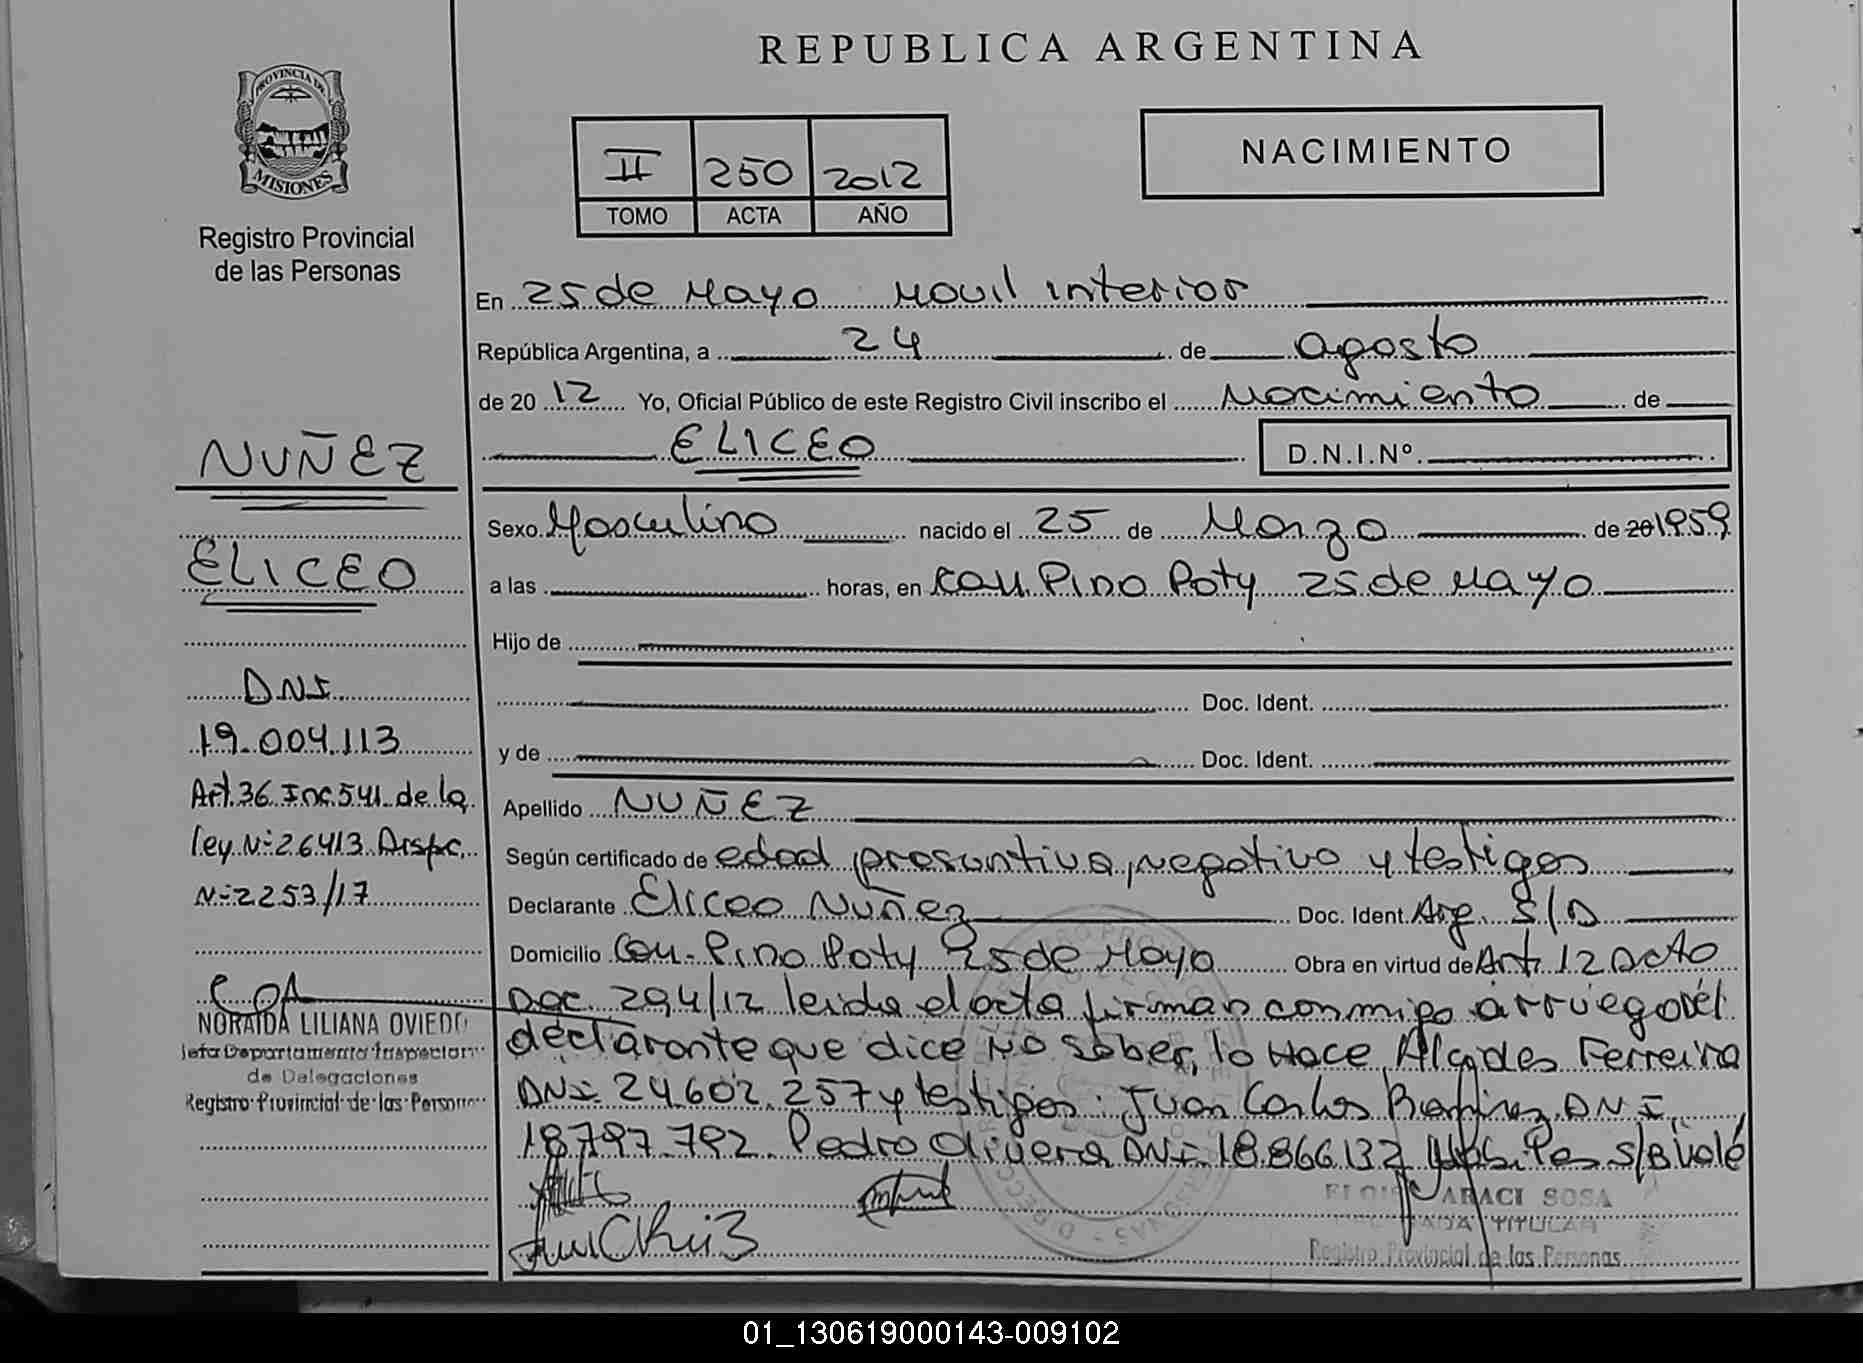 REPUBLICA ARGENTINA
PROVINCIA DE
MISIONES
Registro Provincial
de las Personas
II 250 2012
TOMO ACTA AÑO
NACIMIENTO
En 25 de Mayo Movil interior
República Argentina, a 24 de agosto
de 20 12 Yo, Oficial Público de este Registro Civil inscribo el Nacimiento de
ELICEO D.N.I.Nº
NUÑEZ
ELICEO
DNI
19.004.113
Art. 36 Inc. 541 de la
ley Nº 26413 Dispc.
Nº 2253/17
NORAIDA LILIANA OVIEDO
Jefa Departamento Inspeccion
de Delegaciones
Registro Provincial de las Personas
Sexo Masculino nacido el 25 de Marzo de 20 1959
a las horas, en Com. Pino Poty 25 de Mayo
Hijo de
Doc. Ident.
y de Doc. Ident.
Apellido NUÑEZ
Según certificado de edad presuntiva, negativo y testigos
Declarante Eliceo Nuñez Doc. Ident. Arg. S/D
Domicilio Com. Pino Poty 25 de Mayo Obra en virtud de Art. 12 Dcto
Doc. 294/12 leida el acta firman conmigo a rruego del
declarante que dice No saber, lo Hace Alcides Ferreira
DNI 24.602.257 y testigos: Juan Carlos Ramirez DNI
18.797.792 Pedro Olivera DNI 18.866.132 S/B Vale
ARACI SOSA
TITULAR
Registro Provincial de las Personas
01_130619000143-009102